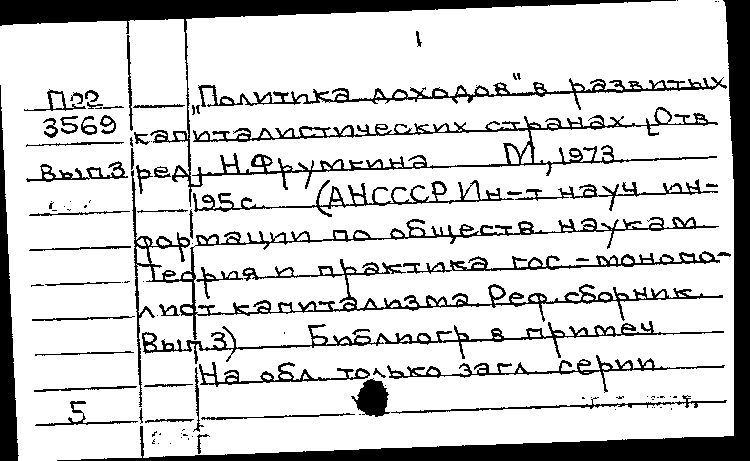 1
П22 „Политика доходов" в развитых
3569 капиталистических странах. [Отв
Вып.3 ред]. Н.Фрумкина М., 1973
195с. (АНСССР. Ин-т науч. ин-
формации по обществ. наукам
Теория и практика гос-монопо-
лист капитализма. Реф.сборник.
Вып.3) Библиогр в примеч
На обл. только загл серии
5